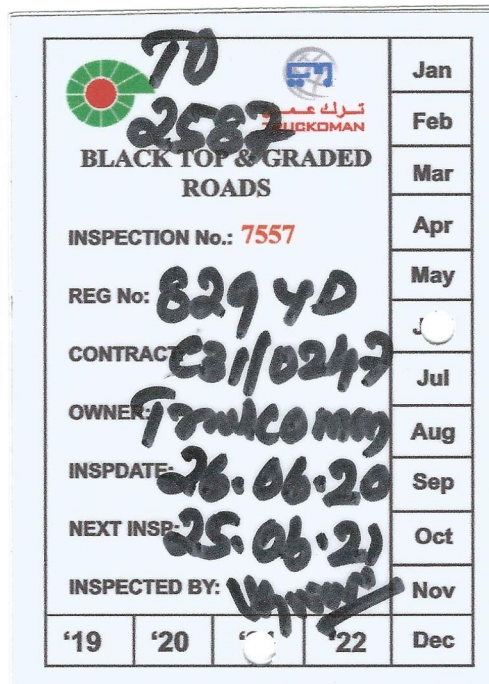 TO
2587
ترك عمان
TRUCKOMAN
BLACK TOP & GRADED
ROADS
INSPECTION No.: 7557
REG No: 829 YD
CONTRACT: C31/0247
OWNER: Truckoman
INSPDATE: 26.06.20
NEXT INSP: 25.06.21
INSPECTED BY:
Jan
Feb
Mar
Apr
May
Jul
Aug
Sep
Oct
Nov
Dec
'19
'20
'22